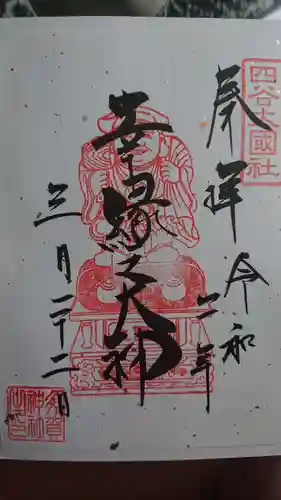 四谷大國社
奉拝
令和二年
幸縁之大神
三月二十二日
須賀
神社
之印